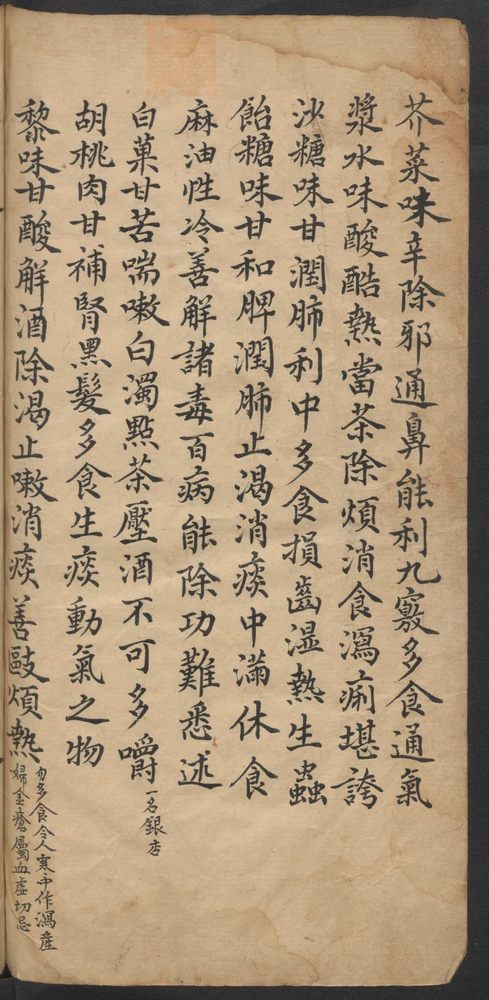 芥菜味辛除邪通鼻能利九竅多食通氣
漿水味酸酷熱當茶除煩消食瀉痢堪誇
沙糖味甘潤肺利中多食損齒湿熱生蟲
飴糖味甘和脾潤肺止渴消痰中滿休食
麻油性冷善解諸毒百病能除功難悉述
白菓甘苦喘嗽白濁點茶壓酒不可多嚼一名銀杏
胡桃肉甘補腎黑髮多食生痰動氣之物
黎味甘酸解酒除渴止嗽消痰善敺煩熱勿多食令人寒中作瀉產
婦金瘡屬血虛切忌